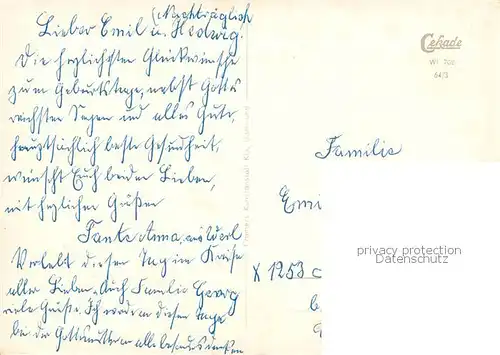 (Nachträglich
Lieber Emil u. Hedwig!
Die herzlichsten Glückwünsche
zum Geburtstage, nebst Gottes
reichsten Segen und alles Gute,
hauptsächlich beste Gesundheit,
wünscht Euch beiden Lieben,
mit herzlichen Grüßen
Tante Anna, aus
Verlebt diesen Tag im Kreise
aller Lieben. Auch Familie Georg
viele Grüße. Ich werde an diesem Tage
bei der Gottesmutter an alle besonders denken
Cekade
WI 706
64/3
Familie
Emi
X 1253
privacy protection
for this person